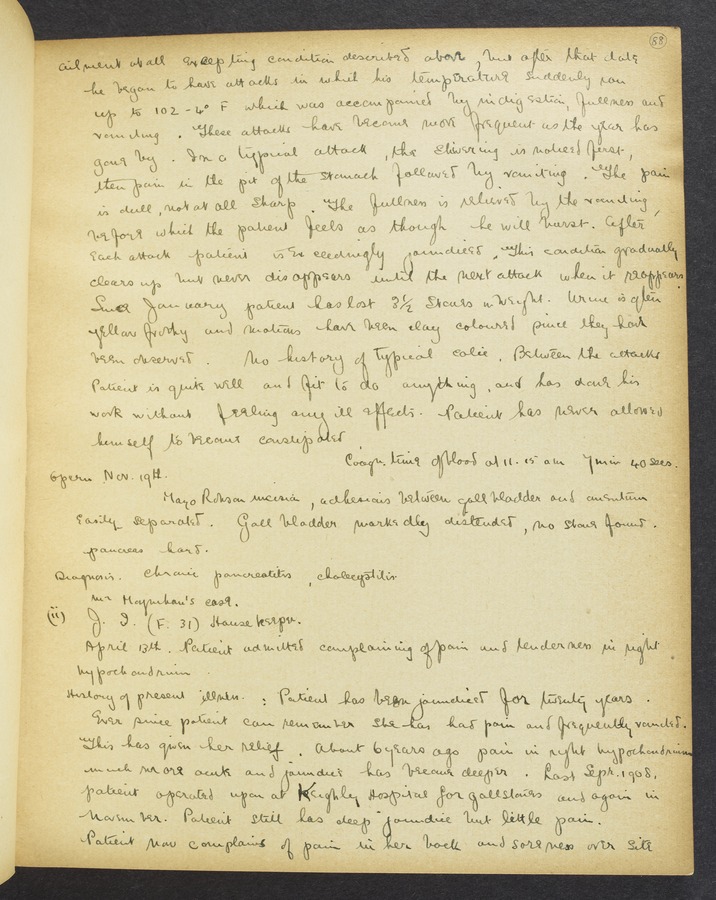 88
ailment at all excepting condition described above, but after that date
he began to have attacks in which his temperature suddenly ran
up to 102 - 4° F which was accompanied by indigestion, fullness and
vomiting. These attacks have become more frequent as the year has
gone by. In a typical attack, the shivering is noticed first,
then pain in the pit of the stomach followed by vomiting. The pain
is dull, not at all sharp. The fullness is relieved by the vomiting,
before which the patient feels as though he will burst. After
each attack patient is exceedingly jaundiced. This condition gradually
clears up but never disappears until the next attack when it reappears
Since January patient has lost 3½ stones in weight. Urine is often
yellow frothy and motions have been clay coloured since they have
been observed. No history of typical colic. Between the attacks
Patient is quite well and fit to do anything, and has done his
work without feeling any ill effects. Patient has never allowed
himself to become constipated
Coagn. time of blood at 11.15 am 7 min 40 secs.
Opern. Nov. 19th.
Mayo Robson incision, adhesions between gall bladder and omentum
easily separated. Gall bladder markedly distended, no stone found.
pancreas hard.
Diagnosis. Chronic pancreatitis, cholecystitis
Mr Moynihan's case.
(ii) J. I. (F. 31) House keeper.
April 13th. Patient admitted complaining of pain and tenderness in right
hypochondrium.
History of present illness. : Patient has been jaundiced for twenty years.
Ever since patient can remember she has had pain and frequently vomited.
This has given her relief. About 6 years ago pain in right hypochondrium
much more acute and jaundice has become deeper. Last Sept. 1908,
patient operated upon at Keighley Hospital for gallstones and again in
November. Patient still has deep jaundice but little pain.
Patient now complains of pain in her back and soreness over site